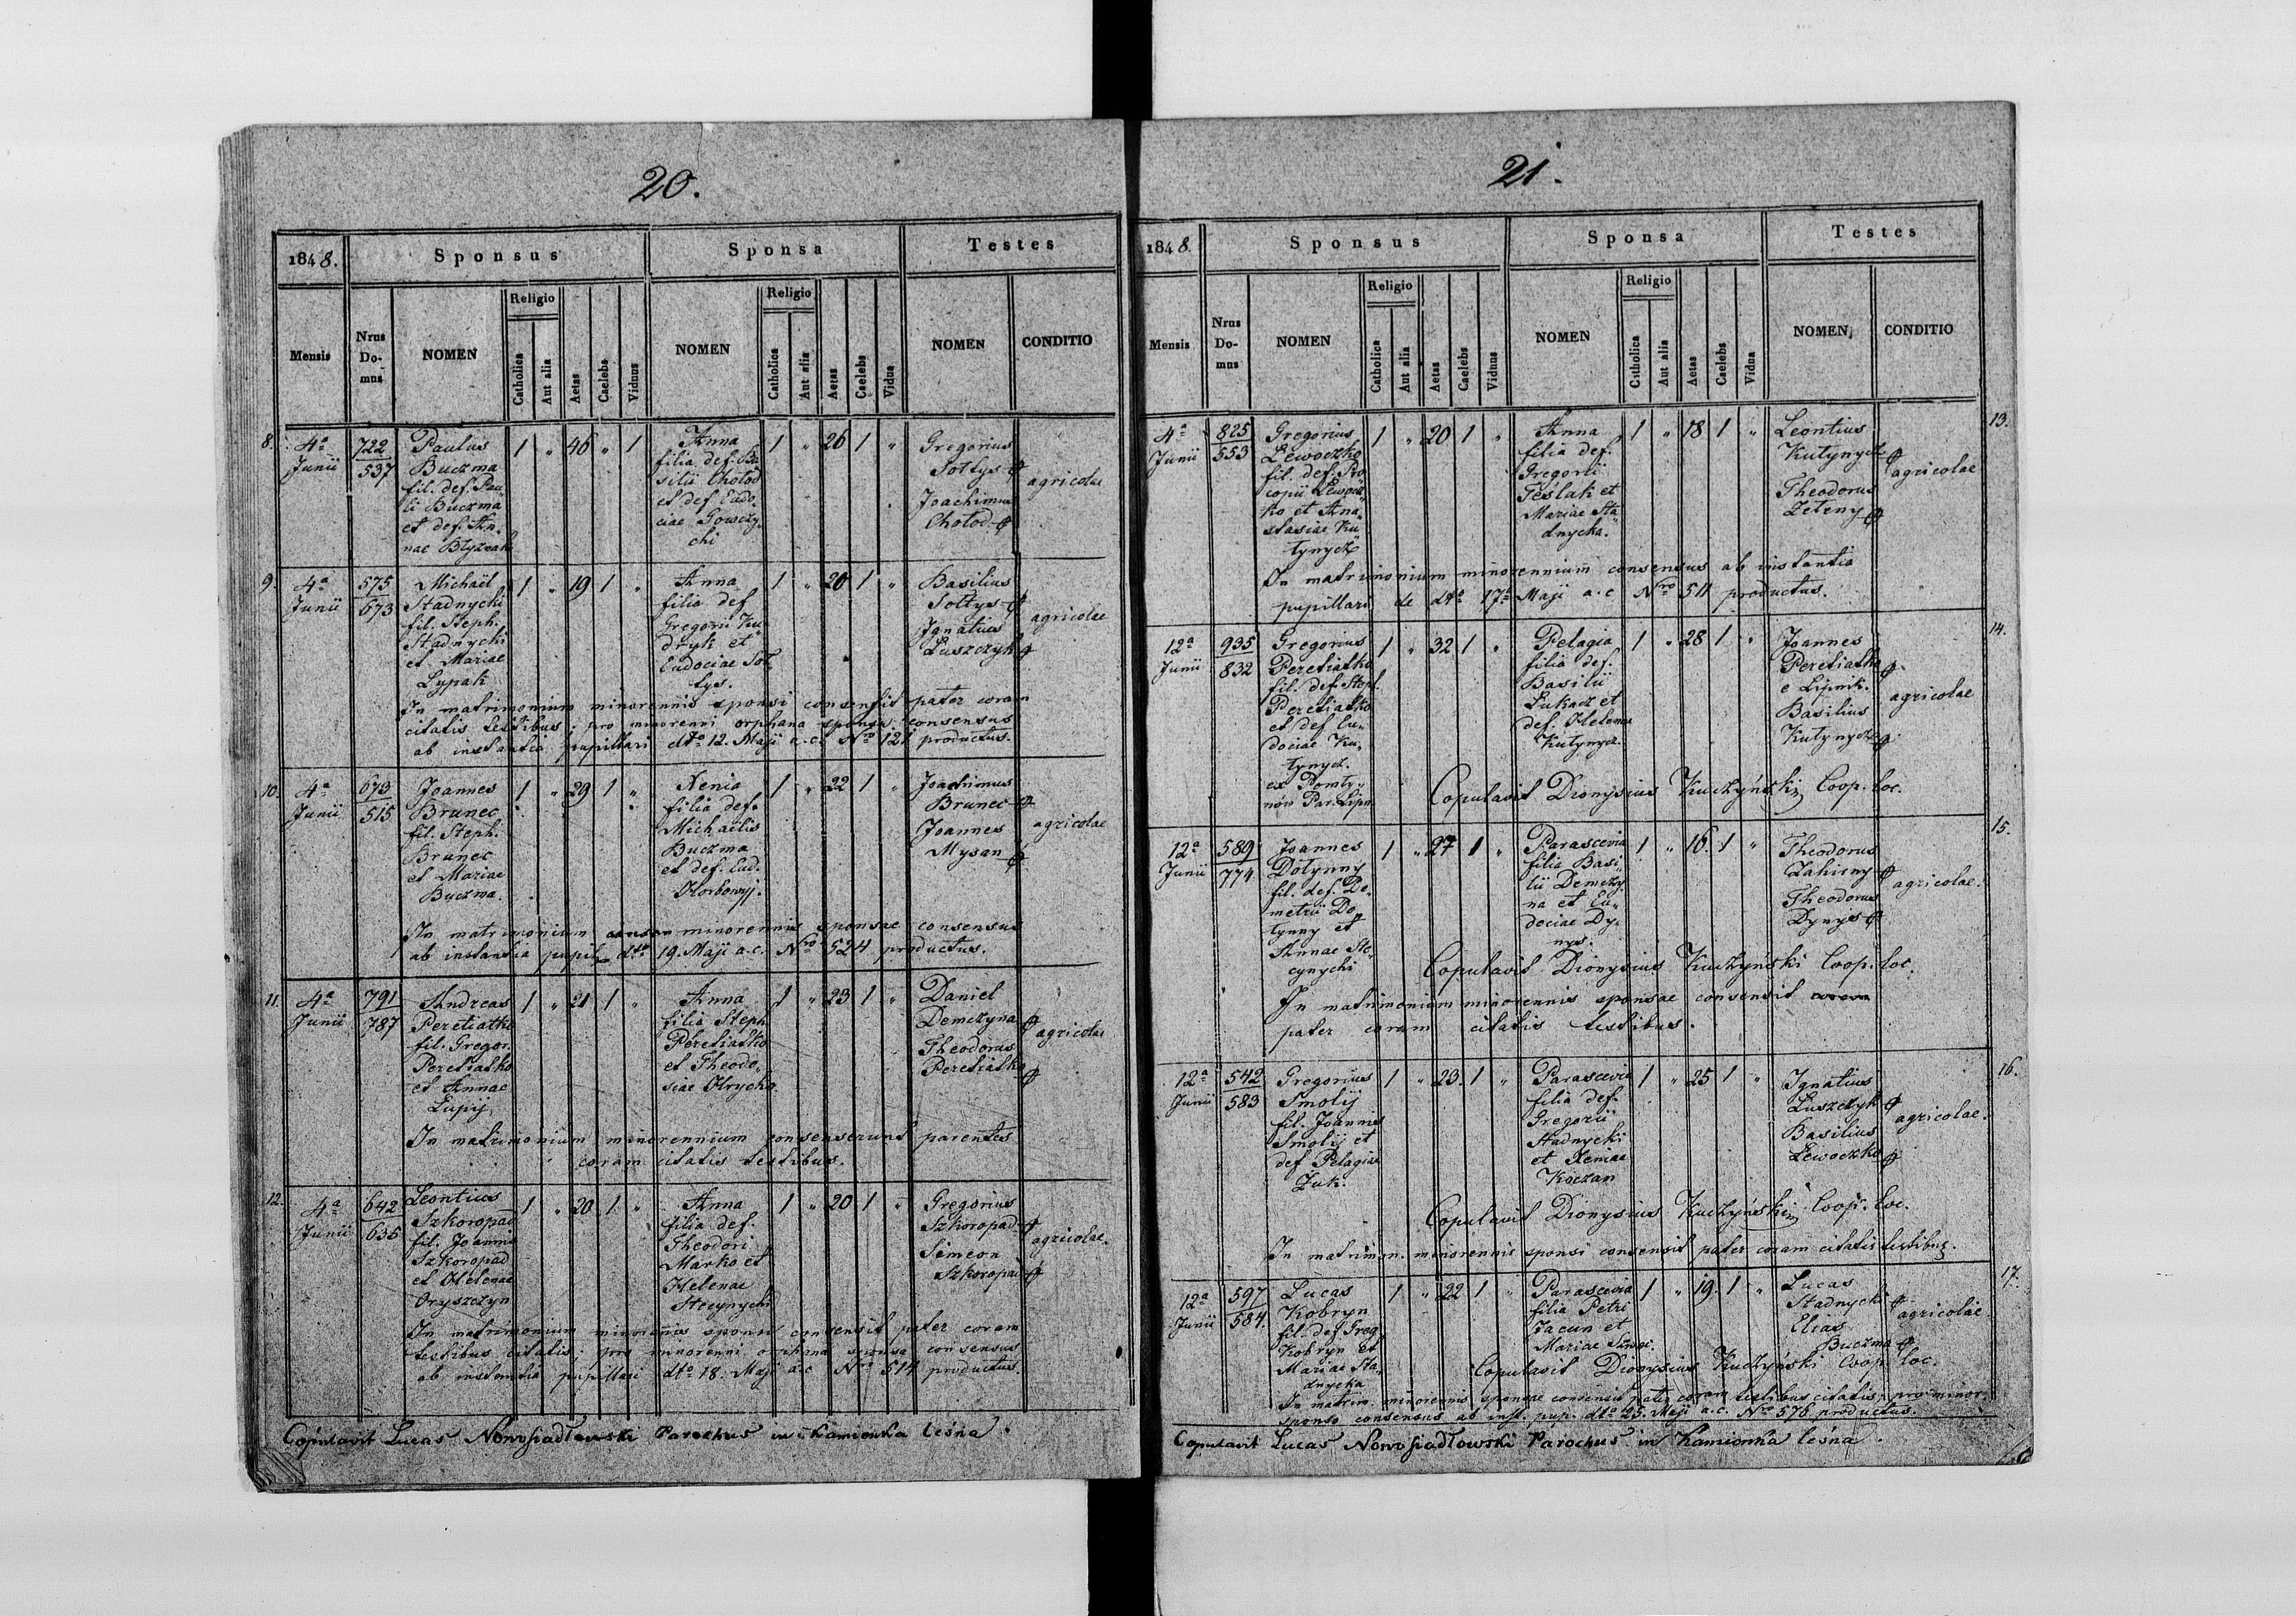 20.
1848.
Sponsus
Sponsa
Testes
Mensis
Nrus Do-mus
NOMEN
Religio
Catholica
Aut alia
Aetas
Caelebs
Viduus
NOMEN
Religio
Catholica
Aut alia
Aetas
Caelebs
Vidua
NOMEN
CONDITIO
8.
4a Junii
722
537
Paulus
Buczma
fil. def. Pau„
li Buczma
et def. An„
nae Błyznak
1 „ 46 „ 1
Anna
filia def. Ba
silii Chołod
et def. Eudo„
ciae
chi
1 „ 26 1 „
Gregorius
Sołtys
Joachimus
Chołod
agricolae
9.
4a Junii
575
673
Michaël
Stadnycki
fil. Steph.
Stadnycki
et Mariae
Lypak
1 „ 19 1 „
Anna
filia def
Gregorii Ku„
dryk et
Eudociae Soł
tys.
1 „ 20 1 „
Basilius
Sołtys
Ignatius
Łuszczyk
agricolae
In matrimonium minorennis sponsi consensit pater coram
citatis testibus; pro minorenni orphana sponsa consensus
ab instantia pupillari dto 12. Maji a.c. Nro 121 productus.
10.
4a Junii
673
515
Joannes
Brunec
fil. Steph.
Brunec
et Mariae
Buczma.
1 „ 29 1 „
Xenia
filia def.
Michaëlis
Buczma
et def. Eud.
Horbowyj.
1 „ 22 1 „
Joachimus
Brunec
Joannes
Mysan
agricolae
In matrimonium minorennis sponsae consensus
ab instantia pupil dto 19. Maji a.c. Nro 524 productus.
11.
4a Junii
791
787
Andreas
Peretiatko
fil. Gregor.
Peretiatko
et Annae
Łupij
1 „ 21 1 „
Anna
filia Steph
Peretiatko
et Theodo„
siae Hrycko
1 „ 23 1 „
Daniel
Demczyna
Theodorus
Peretiatko
agricolae
In matrimonium minorennium consenserunt parentes
coram citatis testibus.
12.
4a Junii
642
635
Leontius
Szkoropad
fil. Joannis
Szkoropad
et Helenae
Oryszczyn
1 „ 20 1 „
Anna
filia def.
Theodori
Marko et
Helenae
Stecynychi
1 „ 20 1 „
Gregorius
Szkoropad
Simeon
Szkoropad
agricolae.
In matrimonium minorennis sponsi consensit pater coram
testibus citatis; pro minorenni orphana sponsa consensus
ab instantia pupillari dto 18. Maji a.c. Nro 514 productus.
Copulavit Lucas Nowosiadlowski Parochus in Kamionka leśna.
21.
1848.
Sponsus
Sponsa
Testes
Mensis
Nrus Do-mus
NOMEN
Religio
Catholica
Aut alia
Aetas
Caelebs
Viduus
NOMEN
Religio
Catholica
Aut alia
Aetas
Caelebs
Vidua
NOMEN
CONDITIO
13.
4a Junii
825
553
Gregorius
Lewoczko
fil. def. Pro
copii Lewocz„
ko et Ana„
stasiae Ku„
tynycz
1 „ 20 1 „
Anna
filia def.
Gregorii
Teślak et
Mariae Sta„
dnycka.
1 „ 18 1 „
Leontius
Kutynycz
Theodorus
Zeleny
agricolae
In matrimonium minorennium consensus ab instantia
pupillari de dto 17a Maji a.c Nro 511 productus.
14.
12a Junii
935
832
Gregorius
Peretiatko
fil. def. Steph.
Peretiatko
et def. Eu„
dociae Ku„
tynycz.
ex
Par. Lipn.
1 „ 32 1 „
Pelagia
filia def.
Basilii
Łukacz et
def. Helenae
Kutynycz.
1 „ 28 1 „
Joannes
Peretiatko
e Lipnik.
Basilius
Kutynycz
agricolae
Copulavit Dionysius Kuczyński Coop. loc.
15.
12a Junii
589
774
Joannes
Dołynny
fil. def. De„
metrii Do„
łynny et
Annae Ste„
cynychi
1 „ 27 1 „
Parascevia
filia Basi„
lii Demczy
na et Eu„
dociae Dy„
nys.
1 „ 16. 1 „
Theodorus
Zahirny
Theodorus
Dynys
agricolae.
Copulavit Dionysius Kuczyński Coop. loc.
In matrimonium minorennis sponsae consensit coram
pater coram citatis testibus.
16.
12a Junii
542
583
Gregorius
Smolij
fil. Joannis
Smolij et
def Pelagiae
Żuk.
1 „ 23. 1 „
Parascevia
filia def.
Gregorii
Stadnycki
et Xeniae
Koczan
1 „ 25 1 „
Ignatius
Łuszczyk
Basilius
Lewoczko
agricolae.
Copulavit Dionysius Kuczyński Coop. loc.
In matrimon. minorennis sponsi consensit pater coram citatis testibus.
17.
12a Junii
597
584.
Lucas
Kobryn
fil. def Greg.
Kobryn et
Mariae Sta„
dnycka
1 „ 22 1 „
Parascevia
filia Petri
Jacun et
Mariae
1 „ 19. 1 „
Lucas
Stadnycki
Elias
Buczma
agricolae
Copulavit Dionysius Kuczyński Coop. loc.
In matrim. minorennis sponsae consensit pater coram testibus citatis; pro minor.
sponso consensus ab inst. pup. dto 25. Maji a.c. Nro 576 productus.
Copulavit Lucas Nowosiadlowski Parochus in Kamionka leśna.